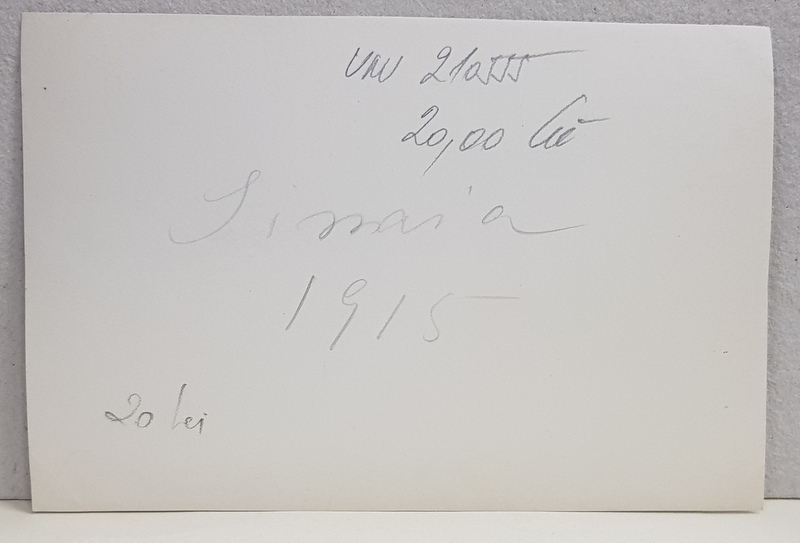 210555
20,00 lei
Sinaia
1915
20 lei